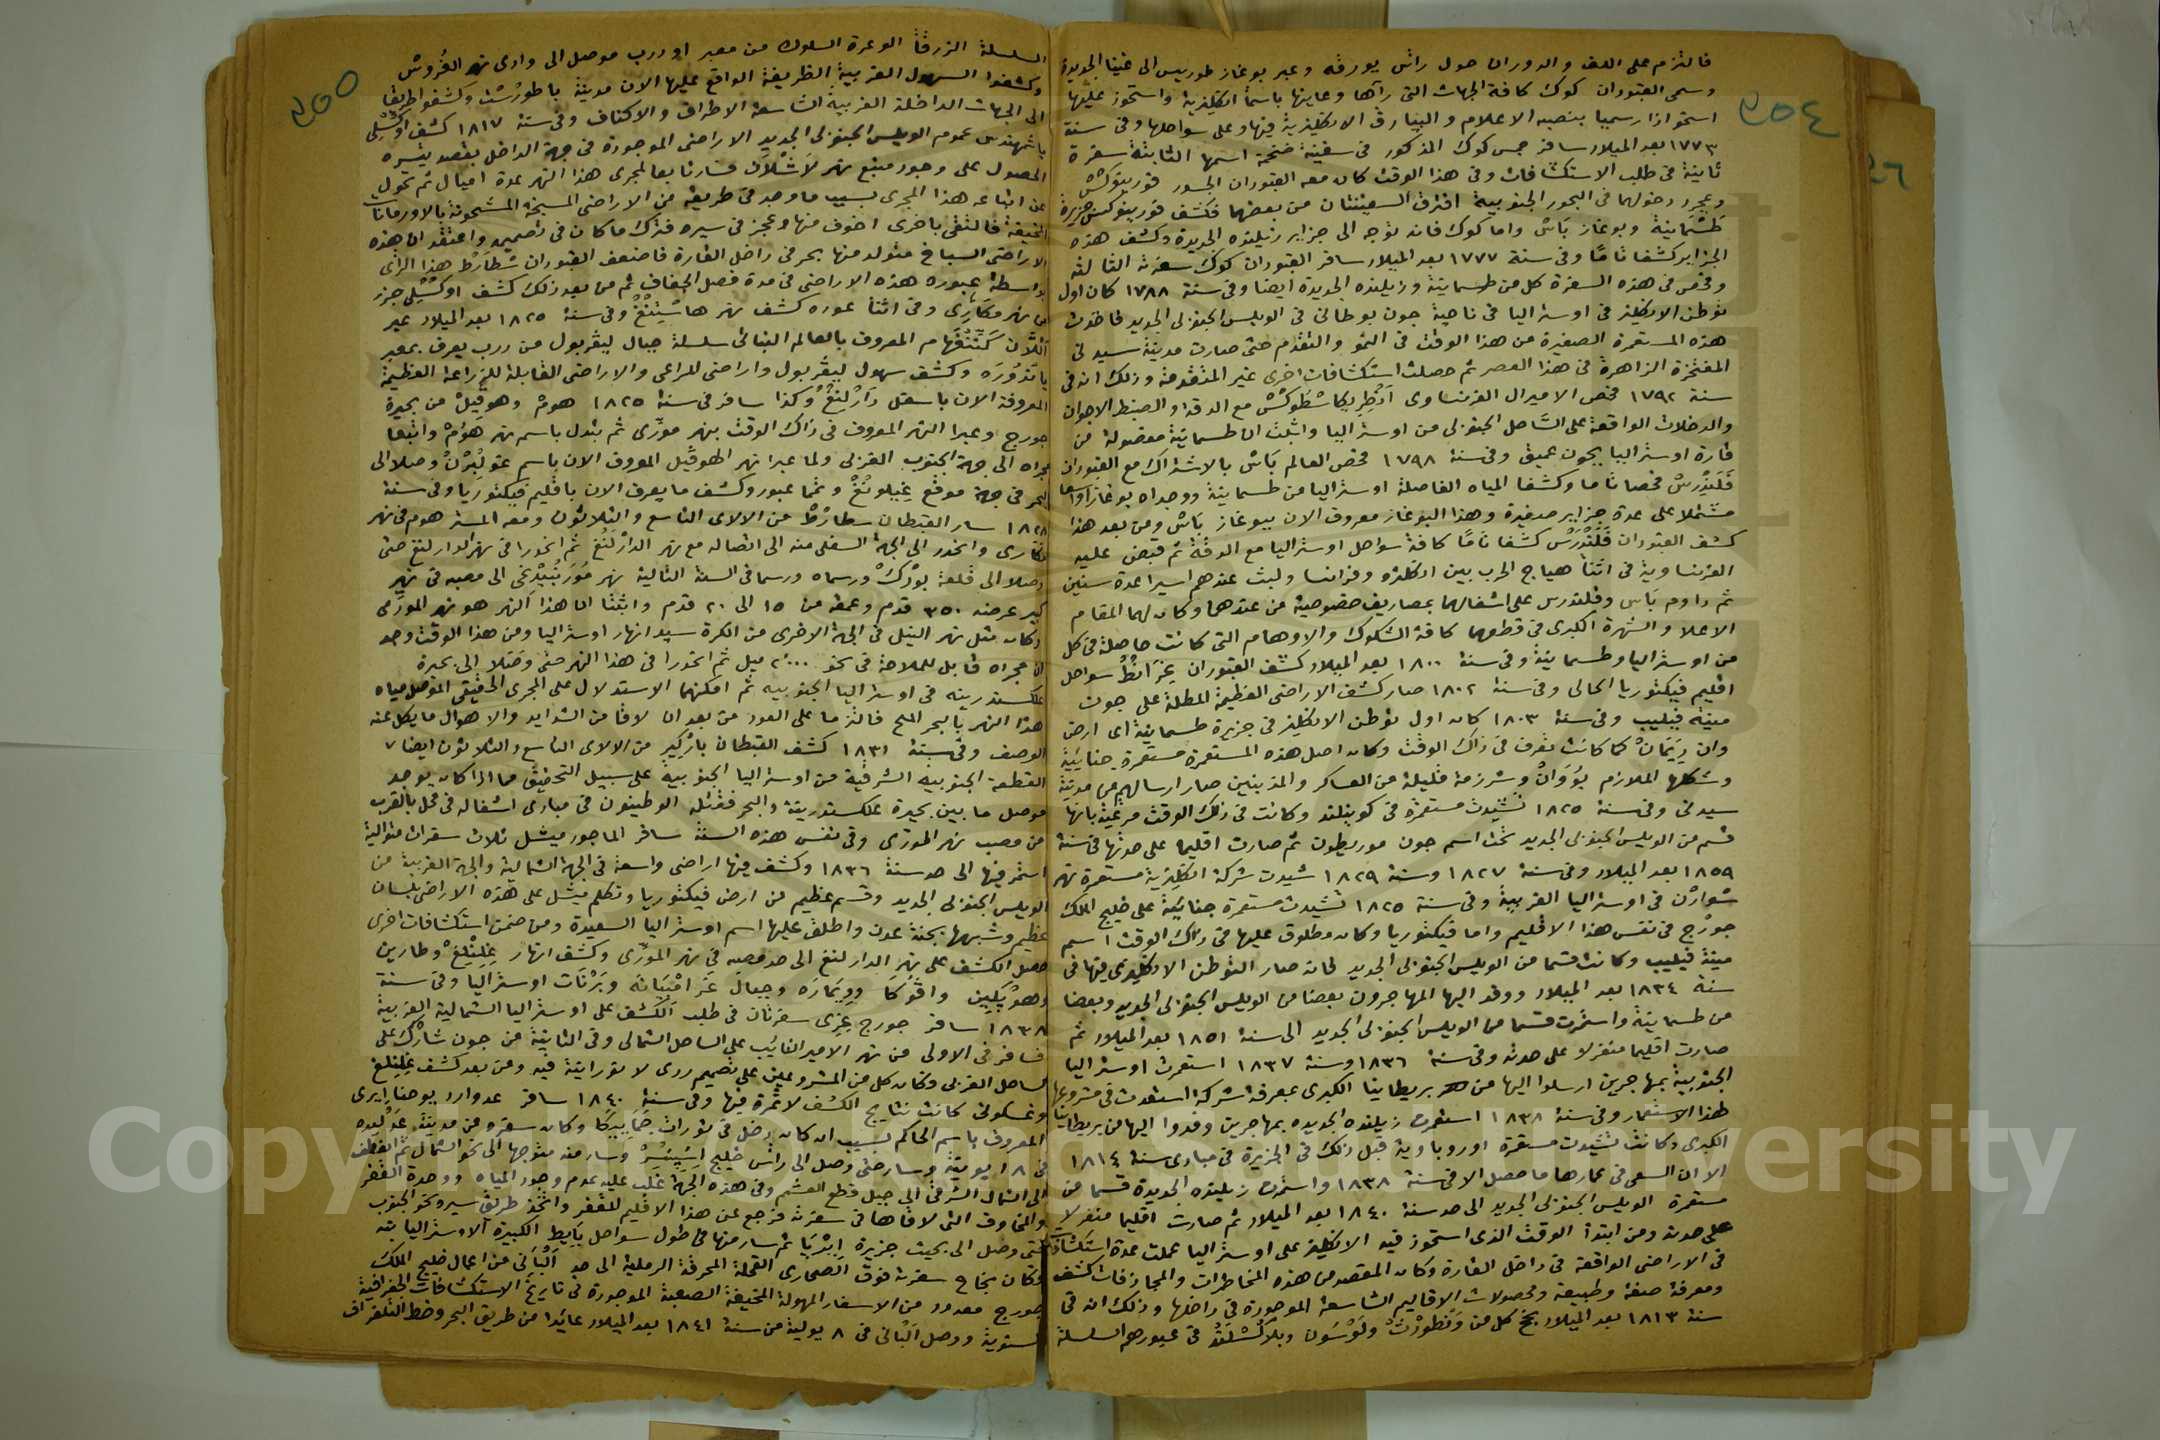 ٢٥٤
فالتزم على اللف والدوران حول راس يورقه وعبر بوغاز طوريس الى غينا الجديدة
وسمى القبتوران كوك كافة الجهات التى رآها وعاينها باسما انكليزية واستحوز عليها
استحوازا رسميا بنصبه الاعلام والبيارق الانكليزية فيها وعلى سواحلها وفى سنة
١٧٧٣ بعد الميلاد سافر جمس كوك المذكور فى سفينة ضخمة اسمها الثابتة سفرة
ثانية فى طلب الاستكشافات وفى هذا الوقت كان معه القبتوران الجسور فورينوكس
وبمجرد دخولهما فى البحور الجنوبية افترقت السفينتان من بعضهما فكشف فورينوكس جزيرة
طسمانية وبوغاز باس واما كوك فانه توجه الى جزاير زيلنده الجديدة وكشف هذه
الجزاير كشفا تاما وفى سنة ١٧٧٧ بعد الميلاد سافر القبتوران كوك سفرته الثالثة
وفحص فى هذه السفرة كل من طسمانية وزيلنده الجديدة ايضا وفى سنة ١٧٨٨ كان اول
توطن الانكليز فى اوستراليا فى ناحية جون بوطانى فى الويلس الجنوبى الجديد فاخذت
هذه المستعمرة الصغيرة من هذا الوقت فى النمو والتقدم حتى صارت مدينة سيدنى
المفتخرة الزاهرة فى هذا العصر ثم حصلت استكشافات اخرى غير المتقدمة وذلك انه فى
سنة ١٧٩٢ فحص الاميرال الفرنساوى مع الدقة والضبط الاجوان
والدخلات الواقعة على الساحل الجنوبى من اوستراليا واثبت ان طسمانية مفصولة من
قارة اوستراليا بجون عميق وفى سنة ١٧٩٨ فحص العالم باس بالاشتراك مع القبتوران
فلندرس فحصا تاما وكشفا المياه الفاصلة اوستراليا من طسمانية ووجداه بوغازا واسعا
مشتملا على عدة جزاير صغيرة وهذا البوغاز معروف الان ببوغاز باس ومن بعد هذا
كشف القبتوران فلندرس كشفا تاما كافة سواحل اوستراليا مع الدقة ثم قبض عليه
الفرنساوية فى اثنا هياج الحرب بين انكلتره وفرانسا ولبث عندهم اسيرا عدة سنين
ثم داوم باس وفلندرس على اشغالهما بمصاريف خصوصية من عندهما وكان لهما المقام
الاعلا والشهرة الكبرى فى قطعهما كافة الشكوك والاوهام التى كانت حاصلة فى كل
من اوستراليا وطسمانية وفى سنة ١٨٠٠ بعد الميلاد كشف القبتوران غرانط سواحل
اقليم فيكتوريا الحالى وفى سنة ١٨٠٢ صار كشف الاراضى العظيمة المطلة على جون
مينة فيليب وفى سنة ١٨٠٣ كان اول توطن الانكليز فى جزيرة طسمانية اى ارض
وان كما كانت تعرف فى ذاك الوقت وكان اصل هذه المستعمرة مستعمرة جنايية
وشكلها الملازم بووان وشرزمة قليلة من العساكر والمذنبين صار ارسالهم من مدينة
سيدنى وفى سنة ١٨٢٥ تشيدت مستعمرة فى كوينزلند وكانت فى ذلك الوقت مرعية بانها
قسم من الويلس الجنوبى الجديد تحت اسم جون موريطون ثم صارت اقليم على حدتها فى سنة
١٨٥٩ بعد الميلاد وفى سنة ١٨٢٧ وسنة ١٨٢٩ شيدت شركة انكليزية مستعمرة نهر
سوارن فى اوستراليا الغربية وفى سنة ١٨٢٥ تشيدت مستعمرة جنايية على خليج الملك
جورج فى نفس هذا الاقليم واما فيكتوريا وكان مطلوق عليها فى ذاك الوقت اسم
مينة فيليب وكانت قسما من الويلس الجنوبى الجديد فانه صار التوطن الانكليزى فيها فى
سنة ١٨٣٤ بعد الميلاد ووفد اليها المهاجرون بعضا من الويلس الجنوبى الجديد وبعضا
من طسمانية واستمرت قسما من الويلس الجنوبى الجديد الى سنة ١٨٥١ بعد الميلاد ثم
صارت اقليما منفرلا على حدته وفى سنة ١٨٣٦ وسنة ١٨٣٧ استعمرت اوستراليا
الجنوبية بمهاجرين ارسلوا اليها من بريطانيا الكبرى بمعرفة شركة استعدت فى مشروعها
لهذا الاستعمار وفى سنة ١٨٣٨ استعمرت زيلنده الجديده بمهاجرين وفدوا اليها من بريطانيا
الكبرى وكانت تشيدت مستعمرة اوروباوية قبل ذلك فى الجزيرة فى مبادى سنة ١٨١٤
الا ان السعى فى عمارها ما حصل الا فى سنة ١٨٣٨ واستمرت زيلنده الجديدة قسما من
مستعمرة الويلس الجنوبى الجديد الى حد سنة ١٨٤٠ بعد الميلاد ثم صارت اقليما منفرلا
على حدته ومن ابتدا الوقت الذى استحوز فيه الانكليز على اوستراليا عملت عدة استكشافات
فى الاراضى الواقعة فى داخل القارة وكان المقصد من هذه المخاطرات والمجازفات كشف
ومعرفة صفة وطبيعة ومحصولات الاقاليم الشاسعة الموجودة فى داخلها وذلك انه فى
سنة ١٨١٣ بعد الميلاد نجح كل من ونطورث ولوسون وبلاكسلند فى عبورهم السلسلة
٢٥٥
السلسلة الزرقا الوعرة السلوك من معبر او درب موصل الى وادى نهر الفروش
وكشفوا السهول الغربية الظريفة الواقع عليها الان مدينة باطورست وكشفوا طريقا
الى الجهات الداخلة الغربية الشاسعة الاطراف والاكناف وفى سنة ١٨١٧ كشف اوكسلى
باشمهندس عموم الويلس الجنوبى الجديد الاراضى الموجودة فى جهة الداخل بقصد تيسره
الحصول على وجود منبع نهر لاشلان فسار تابعا لمجرى هذا النهر عدة اميال ثم تحول
عن اتباعه هذا المجرى بسبب ما وجد فى طريقه من الاراضى السبخة المشحونة بالاورمانات
المخيفة فالتقى باخرى اخوف منها وعجز فى سيره فترك ما كان فى تصميمه واعتقد ان هذه
الاراضى السباخ متولد منها بحر فى داخل القارة فاضعف القبتوران سطارط هذا الراى
بواسطة عبوره هذه الاراضى فى مدة فصل الجفاف ثم من بعد ذلك كشف اوكسلى جزء
من نهر مكارى وفى اثنا عوده كشف نهر هاستينغ وفى سنة ١٨٢٥ بعد الميلاد عبر
اللان كننغهام المعروف بالعالم النباتى سلسلة جبال ليفربول من درب يعرف بمعبر
باندوره وكشف سهول ليفربول واراضى المراعى والاراضى القابلة للزراعة العظيمة
المعروفة الان باسم دارلنغ وكذا سافر فى سنة ١٨٢٥ هوم وهوفيل من بحيرة
جورج وعبرا النهر المعروف فى ذاك الوقت بنهر مورى ثم بتدل باسم نهر هوم واتبعا
مجراه الى جهة الجنوب الغربى ولما عبرا نهر الهوفيل المعروف الان باسم غولبرن وصلا الى
البحر فى جهة موقع غيلونغ وتمما عبور وكشف ما يعرف الان باقليم فيكتوريا وفى سنة
١٨٢٨ سار القبطان سطارط من الالاى التاسع والثلاثون ومعه المستر هوم فى نهر
مكارى وانحدر الى الجهة السفلى منه الى اتصاله مع نهر الدارلنغ ثم انحدرا فى نهر الدارلنغ حتى
وصلا الى قلعة بورك ورسماه ورسما فى السنة التالية نهر الى مصبه فى نهر
كبير عرضه ٣٥٠ قدم وعمقه من ١٥ الى ٢٠ قدم واثبتا ان هذا النهر هو نهر المورى
وكان مثل نهر النيل فى الجهة الاخرى من الكرة سيد انهار اوستراليا ومن هذا الوقت وجد
ان مجراه قابل للملاحة فى نحو ٢٠٠٠ ميل ثم انحدرا فى هذا النهر حتى وصلا الى بحيرة
علكسندرينه فى اوستراليا الجنوبيه ثم امكنهما الاستدلال على المجرى الحقيقى الموصل مياه
هذا النهر بالبحر الملح فالتزما على العود من بعد ان لاقا من الشدايد والاهوال ما يكل عنه
الوصف وفى سنة ١٨٣١ كشف القبطان باركير من الالاى التاسع والثلاثون ايضا
القطعة الجنوبيه الشرقية من اوستراليا الجنوبية على سبيل التحقيق عما اذا كان يوجد
موصل ما بين بحيرة علكسندرينة والبحر فقتله الوطينون فى مبادى اشغاله فى محل بالقرب
من مصب نهر المورى وفى نفس هذه السنة سافر الماجور ميتشل ثلاث سفرات متوالية
استمر فيها الى حد سنة ١٨٣٦ وكشف فيها اراضى واسعة فى الجهة الشمالية والجهة الغربية من
الويلس الجنوبى الجديد وقسم عظيم من ارض فيكتوريا وتكلم ميتشل على هذه الاراضى بلسان
عظيم وشبهها بجنة عدن واطلق عليها اسم اوستراليا السعيدة ومن ضمن استكشافات اخرى
حصل الكشف على نهر الدارلنغ الى حد مصبه فى نهر المورى وكشف انهار غلينلغ وطارين
وهوبكين وافوكا وويمارة وجبال غرامبيانه وبرنات اوستراليا وفى سنة
١٨٣٨ سافر جورج غرى سفرتان فى طلب الكشف على اوستراليا الشمالية الغربية
فسافر فى الاولى من نهر الامير النائب على الساحل الشمالى وفى الثانية من جون شارك على
الساحل الغربى وكان كل من المشروعين على تصميم ردى لا تورانية فيه ومن بعد كشف غلينلغ
وغسكونى كانت نتايج الكشف لا ثمرة فيها وفى سنة ١٨٤٠ سافر عدوارد يوحنا ايرى
المعروف باسم الحاكم بسبب ان كان دخل فى ثورات جماييكا وكان سفره من مدينة عدلده
فى ١٨ يونية وسار حتى وصل الى راس خليج اسبنسر وسار منه متوجها الى نحو الشمال ثم انعطف
الى الشمال الشرقى الى جبل قطع العشم وفى هذه الجهة غلب عليه عدم وجود المياه ووحدة القفر
والمخاوف التى لاقاها فى سفرته فرجع عن هذا الاقليم القفر واتخذ طريق سيره نحو الجنوب
حتى وصل الى بحيث جزيرة ايريا ثم سار منها فى طول سواحل بايط الكبيرة الاوستراليانه
وكان نجاح سفرته فوق الصحارى القحلة المحرقة الرملية الى حد البانى من اعمال خليج الملك
جورج معدود من الاسفار المهولة المخيفة الصعبة الموجودة فى تاريخ الاستكشافات الجغرافية
الستوية ووصل البانى فى ٨ يولية من سنة ١٨٤١ بعد الميلاد عائدا من طريق البحر وخط التلغراف